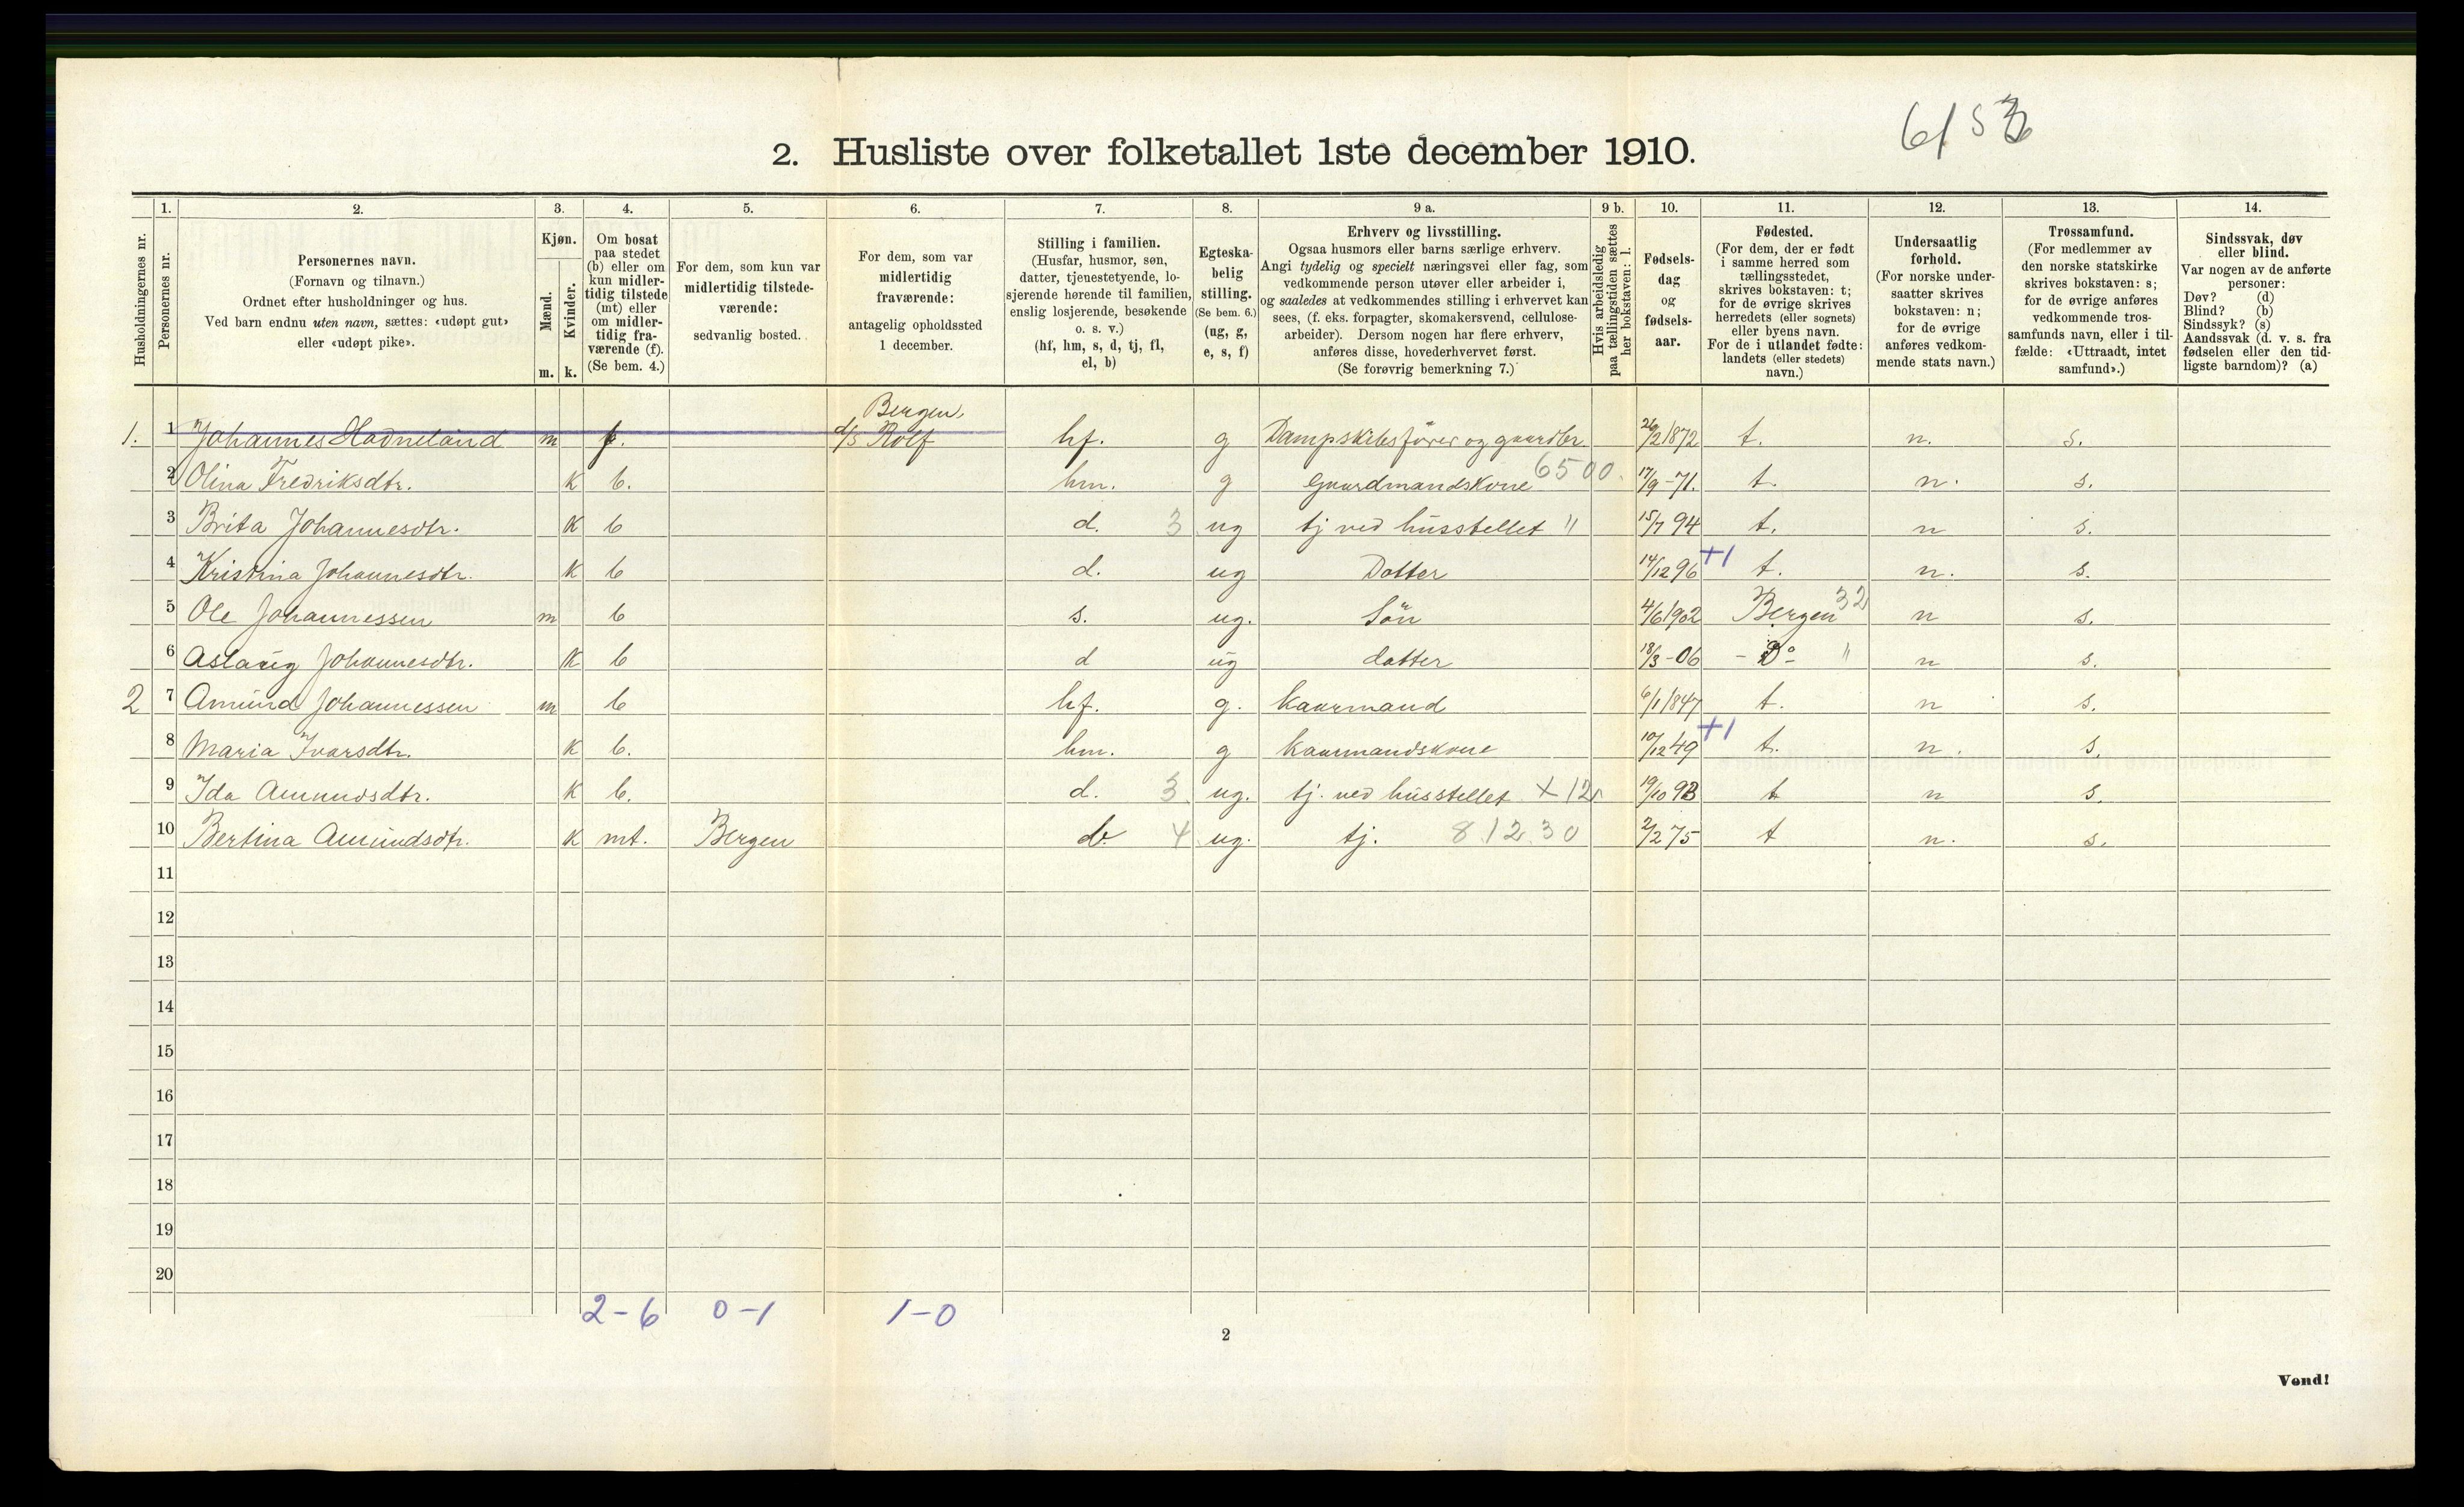 2. Husliste over folketallet 1ste december 1910.
1. 2. 3. 4. 5. 6. 7. 8. 9 a. 9 b. 10. 11. 12. 13. 14.
Husholdningernes nr.
Personernes nr.
Personernes navn.
(Fornavn og tilnavn.)
Ordnet efter husholdninger og hus.
Ved barn endnu uten navn, sættes: «udøpt gut»
eller «udøpt pike».
Kjøn.
Mænd.
Kvinder.
m. k.
Om bosat
paa stedet
(b) eller om
kun midler-
tidig tilstede
(mt) eller
om midler-
tidig fra-
værende (f).
(Se bem. 4.)
For dem, som kun var
midlertidig tilstede-
værende:
sedvanlig bosted.
For dem, som var
midlertidig
fraværende:
antagelig opholdssted
1 december.
Stilling i familien.
(Husfar, husmor, søn,
datter, tjenestetyende, lo-
sjerende hørende til familien,
enslig losjerende, besøkende
o. s. v.)
(hf, hm, s, d, tj, fl,
el, b)
Egteska-
belig
stilling.
(Se bem. 6.)
(ug, g,
e, s, f)
Erhverv og livsstilling.
Ogsaa husmors eller barns særlige erhverv.
Angi tydelig og specielt næringsvei eller fag, som
vedkommende person utøver eller arbeider i,
og saaledes at vedkommendes stilling i erhvervet kan
sees, (f. eks. forpagter, skomakersvend, cellulose-
arbeider). Dersom nogen har flere erhverv,
anføres disse, hovederhvervet først.
(Se forøvrig bemerkning 7.)
Hvis arbeidsledig
paa tællingstiden sættes
her bokstaven: l.
Fødsels-
dag
og
fødsels-
aar.
Fødested.
(For dem, der er født
i samme herred som
tællingsstedet,
skrives bokstaven: t;
for de øvrige skrives
herredets (eller sognets)
eller byens navn.
For de i utlandet fødte:
landets (eller stedets)
navn.)
Undersaatlig
forhold.
(For norske under-
saatter skrives
bokstaven: n;
for de øvrige
anføres vedkom-
mende stats navn.)
Trossamfund.
(For medlemmer av
den norske statskirke
skrives bokstaven: s;
for de øvrige anføres
vedkommende tros-
samfunds navn, eller i til-
fælde: «Uttraadt, intet
samfund».)
Sindssvak, døv
eller blind.
Var nogen av de anførte
personer:
Døv? (d)
Blind? (b)
Sindssyk? (s)
Aandssvak (d. v. s. fra
fødselen eller den tid-
ligste barndom)? (a)
Bergen,
1. 1 Johannes Hadneland m f. d/s Rolf hf. g Dampskibsfører og gaardbr. 26/2 1872 t. n. s.
2 Olina Fredriksdtr. k b. hm. g Gaardmandskone 6500. 17/9 -71. t. n. s.
3 Brita Johannesdtr. k b d. 3 ug tj ved husstellet " 15/7 94 t. n s.
4 Kristina Johannesdtr. k b d. ug Datter 14/12 96 +1 t. n. s.
5 Ole Johannessen m b s. ug. Sön 4/6 1902 Bergen 32 n s.
6 Aslaug Johannesdtr. k b d ug datter 18/3 -06 - Do " n s.
2 7 Amund Johannessen m b hf. g. kaarmand 6/1 1847 t. n s.
8 Maria Ivarsdtr. k b. hm. g kaarmandskone 10/12 49 +1 t. n. s.
9 Ida Amundsdtr. k b. d. 3 ug. tj. ved husstellet x 12 19/10 93 t n s.
10 Bertina Amundsdtr. k mt. Bergen d. 4 ug. tj. 81230 2/2 75 t n. s.
11
12
13
14
15
16
17
18
19
20
2-6 0-1 1-0
2
Vend!